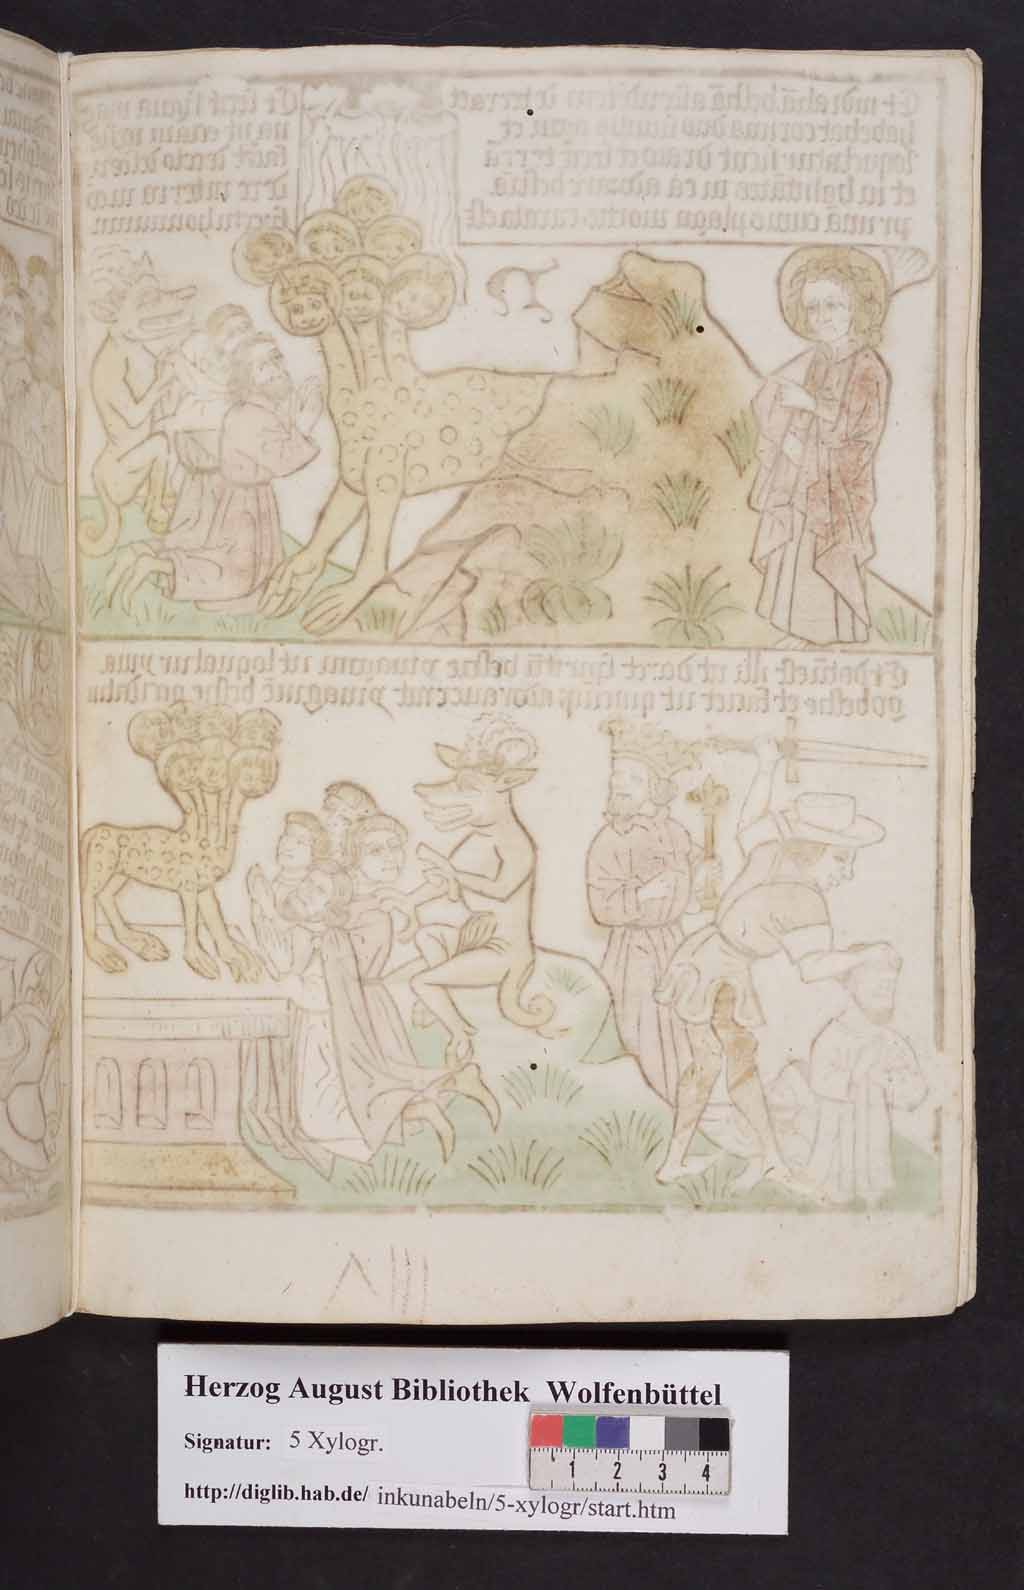 Et vidi aliā bestiā ascendentem de terra et
habebat cornua duo similia agni et
loquebatur sicut draco et fecit terrā
et inhabitātes in ea adorare bestiā
primā cuius plaga mortis curata est
Et fecit signa mag
na ut etiam ignē
faceret de celo descen
dere in terrā in con
spectu hominum
Et datū est illi ut daret spiritū bestie ymagini et ut loquatur yma
go bestie et faciet ut quicumque non adoraverint ymaginē bestie occidantur
Herzog August Bibliothek Wolfenbüttel
Signatur: 5 Xylogr.
1 2 3 4
http://diglib.hab.de/ inkunabeln/5-xylogr/start.htm